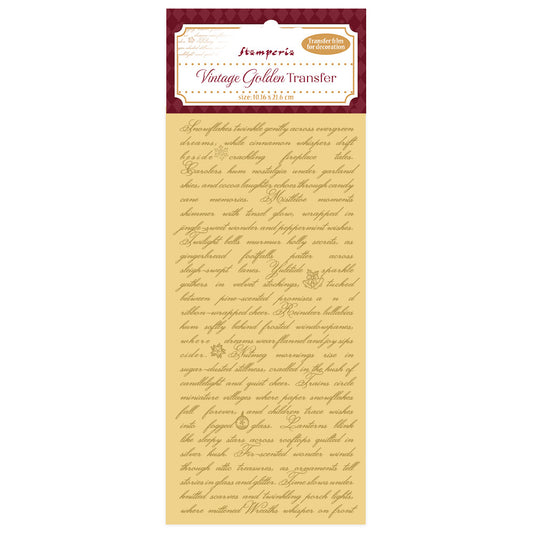 Stamperia
Transfer film
for decoration
Vintage Golden Transfer
size: 10.16 x 21.6 cm
Snowflakes twinkle gently across evergreen
dreams, while cinnamon whispers drift
beside crackling fireplace tales.
Carolers hum nostalgia under garland
skies, and cocoa laughter echoes through candy
cane memories. Mistletoe moments
shimmer with tinsel glow, wrapped in
jingle-sweet wonder and peppermint wishes.
Twilight bells murmur holly secrets, as
gingerbread footfalls patter across
sleigh-swept lanes. Yuletide sparkle
gathers in velvet stockings, tucked
between pine-scented promises and
ribbon-wrapped cheer. Reindeer lullabies
hum softly behind frosted windowpanes,
where dreams wear flannel and joy sips
cider. Nutmeg mornings rise in
sugar-dusted stillness, cradled in the hush of
candlelight and quiet cheer. Trains circle
miniature villages where paper snowflakes
fall forever, and children trace wishes
into fogged glass. Lanterns blink
like sleepy stars across rooftops quilted in
silver hush. Fir-scented wonder winds
through attic treasures, as ornaments tell
stories in glass and glitter. Time slows under
knitted scarves and twinkling porch lights,
where mittened Wreaths whisper on front